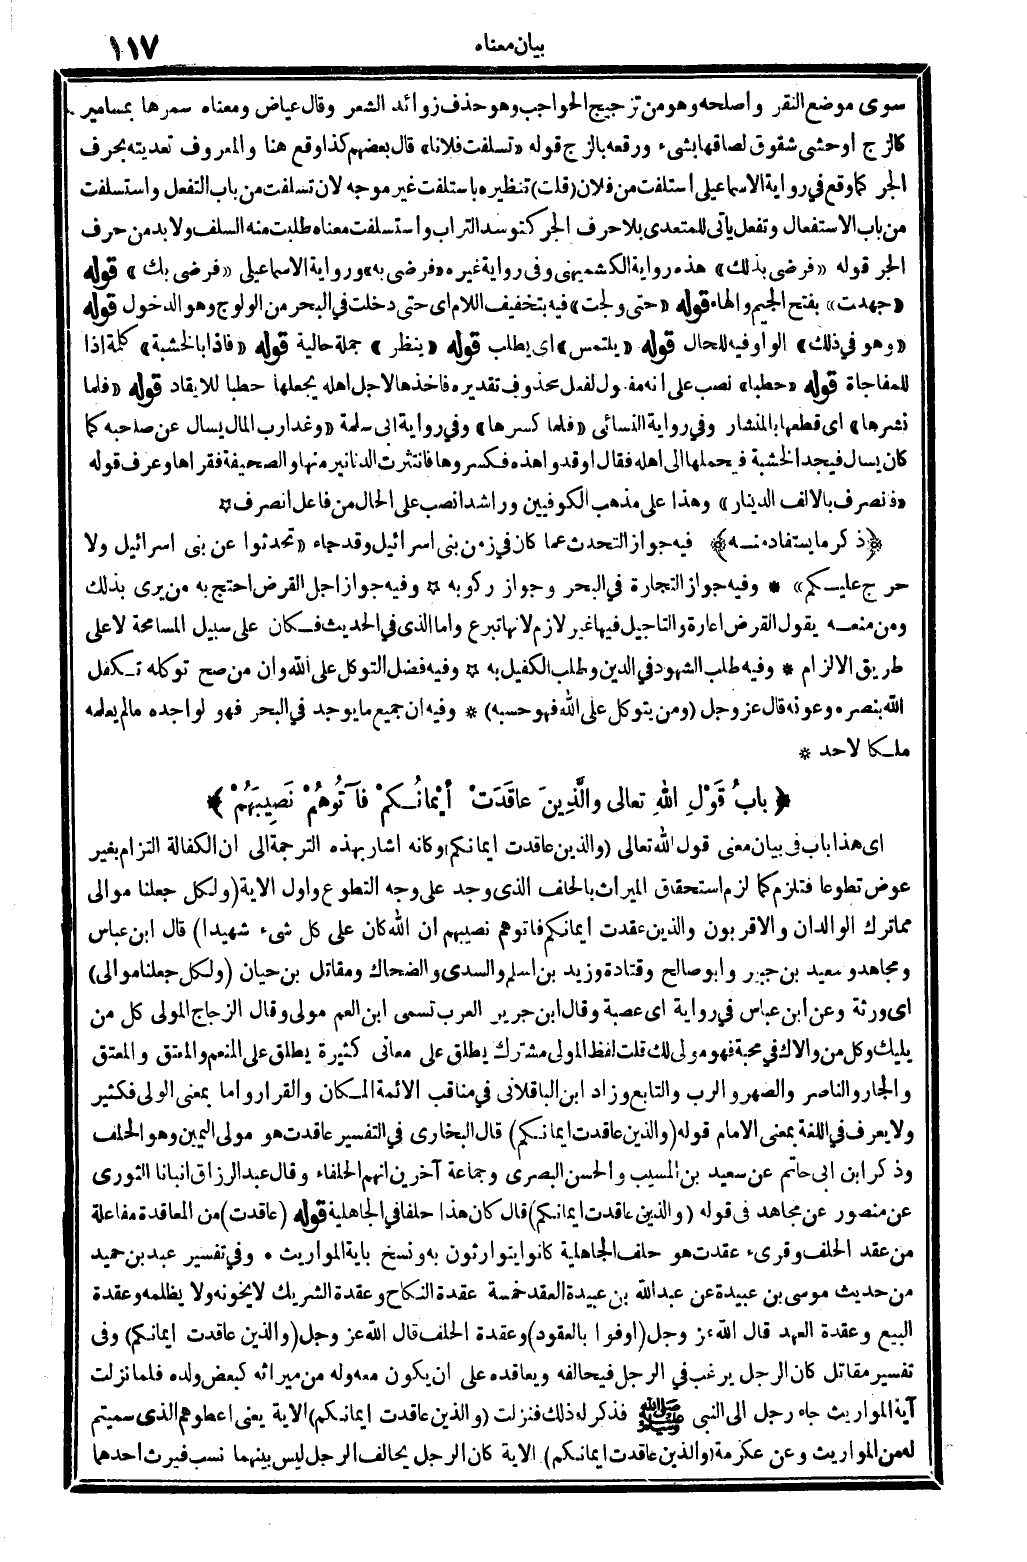 بيان معناه
١١٧
سوى موضع النقر وأصلحه وهو من تزجيج الحواجب وهو حذف زوائد الشعر وقال عياض ومعناه سمرها بمسامير
كالزج أو حشى شقوق لصاقها بشىء ورقعه بالزج قوله «تسلفت فلانا» قال بعضهم كذا وقع هنا والمعروف تعديته بحرف
الجر كما وقع في رواية الاسماعيلى استلفت من فلان (قلت) تنظيره باستلفت غير موجه لان تسلفت من باب التفعل واستسلفت
من باب الاستفعال وتفعل يأتى للمتعدى بلا حرف الجر كتوسد التراب واستسلفت معناه طلبت منه السلف ولا بد من حرف
الجر قوله «فرضى بذلك» هذه رواية الكشميهنى وفى رواية غيره «فرضى به» ورواية الاسماعيلى «فرضى بك» قوله
«جهدت» بفتح الجيم والهاء قوله «حتى ولجت» فيه بتخفيف اللام اى حتى دخلت في البحر من الولوج وهو الدخول قوله
«وهو في ذلك» الواو فيه للحال قوله «يلتمس» اى يطلب قوله «ينظر» جملة حالية قوله «فاذا بالخشبة» كلمة اذا
للمفاجاة قوله «حطبا» نصب على انه مفعول لفعل محذوف تقديره فاخذها لاجل اهله يجعلها حطبا للايقاد قوله «فلما
نشرها» اى قطعها بالمنشار وفي رواية النسائى «فلما كسرها» وفي رواية ابى سلمة «وغدا رب المال يسال عن صاحبه كما
كان يسال فيجد الخشبة فيحملها الى اهله فقال اوقدوا هذه فكسروها فانتثرت الدنانير منها والصحيفة فقراها وعرف قوله
«فانصرف بالالف الدينار» وهذا على مذهب الكوفيين وراشدا نصب على الحال من فاعل انصرف ✩
﴿ذكر ما يستفاد منه﴾ فيه جواز التحدث عما كان في زمن بنى اسرائيل وقد جاء «تحدثوا عن بنى اسرائيل ولا
حرج عليكم» * وفيه جواز التجارة في البحر وجواز ركوبه ✩ وفيه جواز اجل القرض احتج به من يرى بذلك
ومن منعه يقول القرض اعارة والتاجيل فيها غير لازم لانها تبرع واما الذى في الحديث فكان على سبيل المسامحة لا على
طريق الالزام * وفيه طلب الشهود في الدين وطلب الكفيل به ✩ وفيه فضل التوكل على الله وان من صح توكله تكفل
الله بنصره وعونه قال عز وجل (ومن يتوكل على الله فهو حسبه) * وفيه ان جميع ما يوجد في البحر فهو لواجده مالم يعلمه
ملكا لاحد *
﴿ بابُ قَوْلِ اللهِ تعالى والَّذِينَ عاقَدَتْ أيْمانُكمْ فآتُوهُمْ نَصِيبَهُمْ ﴾
اى هذا باب في بيان معنى قول الله تعالى (والذين عاقدت ايمانكم) وكانه اشار بهذه الترجمة الى ان الكفالة التزام بغير
عوض تطوعا فتلزم كما لزم استحقاق الميراث بالحلف الذى وجد على وجه التطوع واول الاية (ولكل جعلنا موالى
مما ترك الوالدان والاقربون والذين عقدت ايمانكم فاتوهم نصيبهم ان الله كان على كل شىء شهيدا) قال ابن عباس
ومجاهد وسعيد بن جبير وابو صالح وقتادة وزيد بن اسلم والسدى والضحاك ومقاتل بن حيان (ولكل جعلنا موالى)
اى ورثة وعن ابن عباس في رواية اى عصبة وقال ابن جرير العرب تسمى ابن العم مولى وقال الزجاج المولى كل من
يليك وكل من والاك في محبة فهو مولى لك قلت لفظ المولى مشترك يطلق على معانى كثيرة يطلق على المنعم والمعتق والمعتق
والجار والناصر والصهر والرب والتابع وزاد ابن الباقلانى في مناقب الائمة المكان والقرار واما بمعنى الولى فكثير
ولا يعرف في اللغة بمعنى الامام قوله (والذين عاقدت ايمانكم) قال البخارى في التفسير عاقدت هو مولى اليمين وهو الحلف
وذكر ابن ابى حاتم عن سعيد بن المسيب والحسن البصرى وجماعة آخرين انهم الحلفاء وقال عبد الرزاق انبانا الثورى
عن منصور عن مجاهد فى قوله (والذين عاقدت ايمانكم) قال كان هذا حلفا في الجاهلية قوله (عاقدت) من المعاقدة مفاعلة
من عقد الحلف وقرىء عقدت هو حلف الجاهلية كانوا يتوارثون به ونسخ باية المواريث • وفي تفسير عبد بن حميد
من حديث موسى بن عبيدة عن عبد الله بن عبيدة العقد خمسة عقدة النكاح وعقدة الشريك لا يخونه ولا يظلمه وعقدة
البيع وعقدة العهد قال الله عز وجل (اوفوا بالعقود) وعقدة الحلف قال الله عز وجل (والذين عاقدت ايمانكم) وفى
تفسير مقاتل كان الرجل يرغب في الرجل فيحالفه ويعاقده على ان يكون معه وله من ميراثه كبعض ولده فلما نزلت
آية المواريث جاء رجل الى النبى ﷺ فذكر له ذلك فنزلت (والذين عاقدت ايمانكم) الاية يعنى اعطوهم الذى سميتم
لهم من المواريث وعن عكرمة (والذين عاقدت ايمانكم) الاية كان الرجل يحالف الرجل ليس بينهما نسب فيرث احدهما